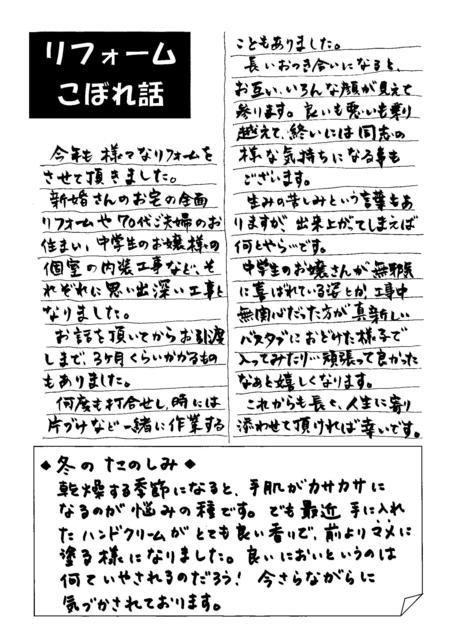 リフォーム
こぼれ話
今年も様々なリフォームを
させて頂きました。
新婚さんのお宅の全面
リフォームや70代ご夫婦のお
住まい、中学生のお嬢様の
個室の内装工事など、そ
れぞれに思い出深い工事と
なりました。
お話を頂いてからお引渡
しまで、3ヶ月くらいかかるもの
もありました。
何度も打合せし、時には
片づけなど一緒に作業する
こともありました。
長いおつき合いになると、
お互い、いろんな顔が見えて
参ります。良いも悪いも乗り
越えて、終いには同志の
様な気持ちになる事も
ございます。
生みの苦しみという言葉もあ
りますが、出来上がってしまえば
何とやら…です。
中学生のお嬢さんが無邪気
に喜ばれている姿とか、工事中
無関心だった方が真新しい
バスタブにおどけた様子で
入ってみたり…頑張って良かった
なあと嬉しくなります。
これからも長く、人生に寄り
添わせて頂ければ幸いです。
◆冬のたのしみ◆
乾燥する季節になると、手肌がカサカサに
なるのが悩みの種です。でも最近手に入れ
たハンドクリームがとても良い香りで、前よりマメに
塗る様になりました。良いにおいというのは
何ていやされるのだろう！今さらながらに
気づかされております。